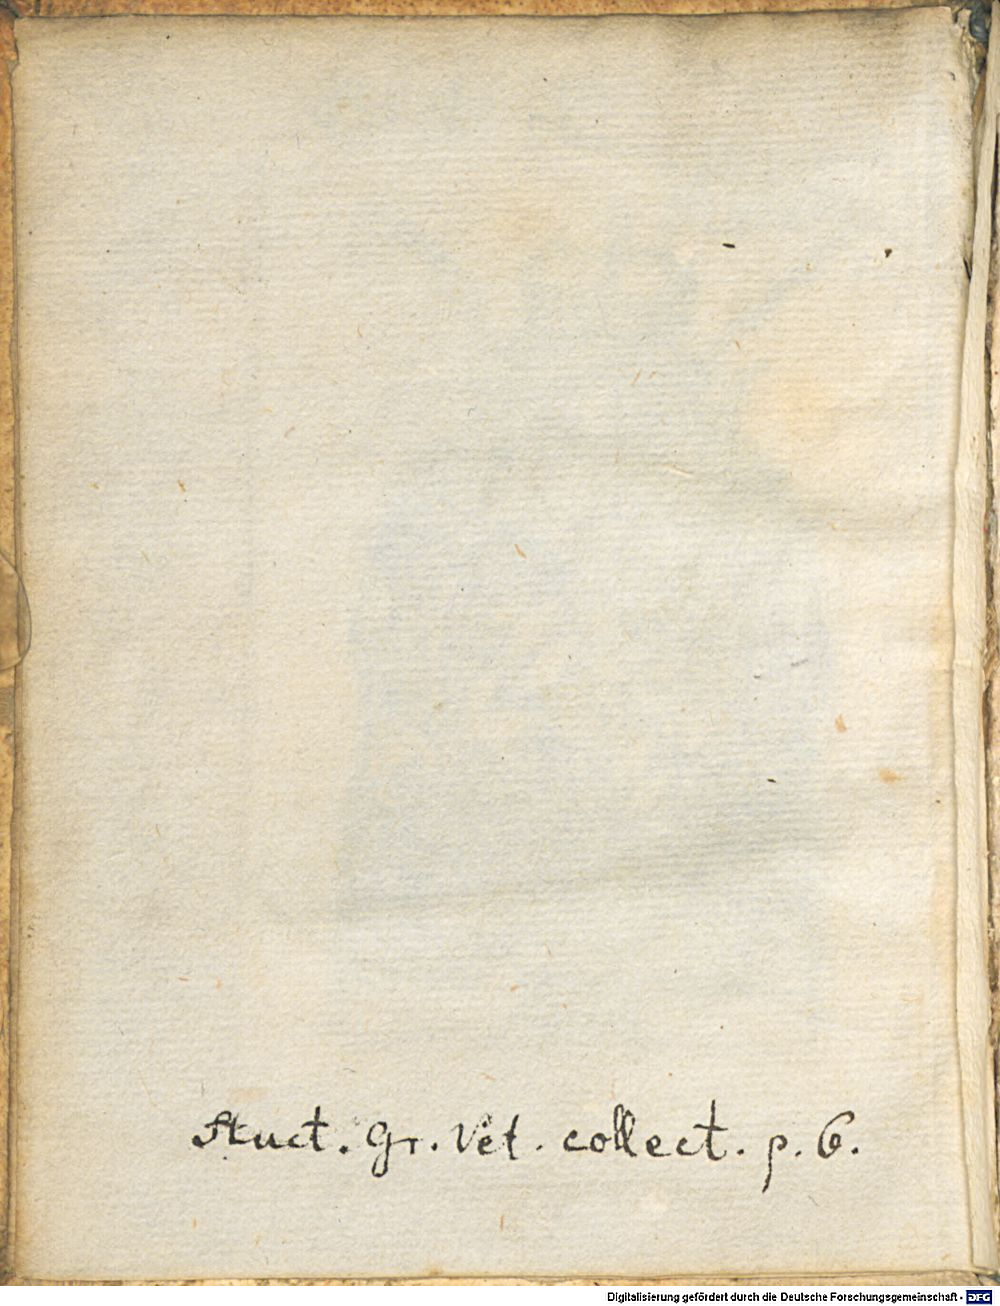 Auct. Gr. Vet. collect. p. 6.
Digitalisierung gefördert durch die Deutsche Forschungsgemeinschaft - DFG